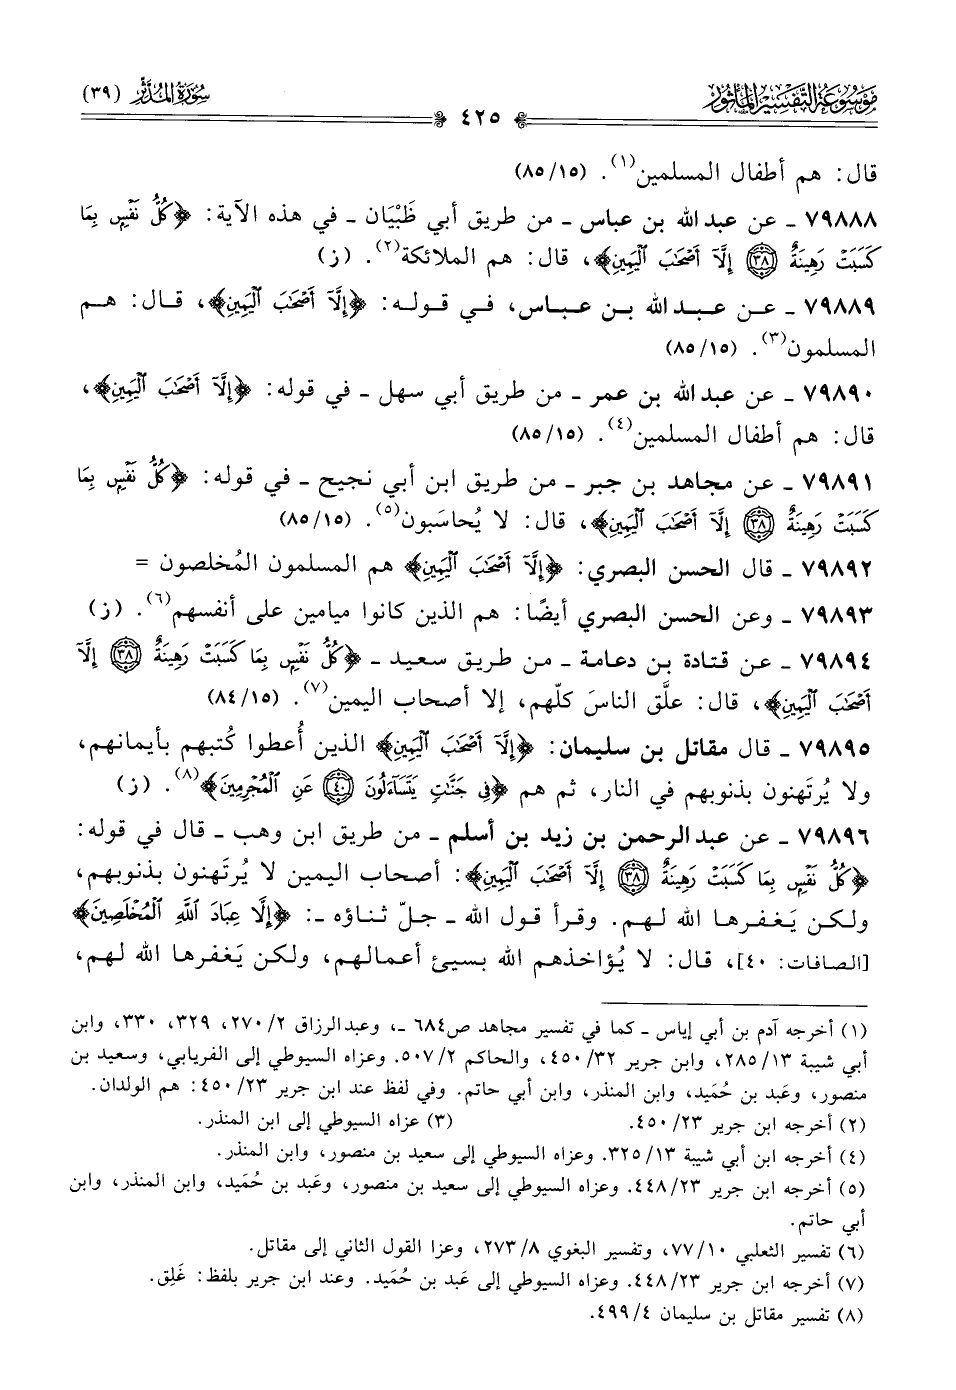 موسوعة التفسير المأثور
سورة المدثر (٣٩)
٤٢٥
قال: هم أطفال المسلمين(١). (٨٥/١٥)
٧٩٨٨٨ ـ عن عبد الله بن عباس ـ من طريق أبي ظَبْيَان ـ في هذه الآية: ﴿كُلُّ نَفْسٍ بِمَا
كَسَبَتْ رَهِينَةٌ ٣٨ إِلَّآ أَصْحَٰبَ ٱلْيَمِينِ﴾، قال: هم الملائكة(٢). (ز)
٧٩٨٨٩ ـ عن عبد الله بن عباس، في قوله: ﴿إِلَّآ أَصْحَٰبَ ٱلْيَمِينِ﴾، قال: هم
المسلمون(٣). (٨٥/١٥)
٧٩٨٩٠ ـ عن عبد الله بن عمر ـ من طريق أبي سهل ـ في قوله: ﴿إِلَّآ أَصْحَٰبَ ٱلْيَمِينِ﴾،
قال: هم أطفال المسلمين(٤). (٨٥/١٥)
٧٩٨٩١ ـ عن مجاهد بن جبر ـ من طريق ابن أبي نجيح ـ في قوله: ﴿كُلُّ نَفْسٍ بِمَا
كَسَبَتْ رَهِينَةٌ ٣٨ إِلَّآ أَصْحَٰبَ ٱلْيَمِينِ﴾، قال: لا يُحاسَبون(٥). (٨٥/١٥)
٧٩٨٩٢ ـ قال الحسن البصري: ﴿إِلَّآ أَصْحَٰبَ ٱلْيَمِينِ﴾ هم المسلمون المُخلصون =
٧٩٨٩٣ ـ وعن الحسن البصري أيضًا: هم الذين كانوا ميامين على أنفسهم(٦). (ز)
٧٩٨٩٤ ـ عن قتادة بن دعامة ـ من طريق سعيد ـ ﴿كُلُّ نَفْسٍ بِمَا كَسَبَتْ رَهِينَةٌ ٣٨ إِلَّآ
أَصْحَٰبَ ٱلْيَمِينِ﴾، قال: علَّق الناسَ كلّهم، إلا أصحاب اليمين(٧). (٨٤/١٥)
٧٩٨٩٥ ـ قال مقاتل بن سليمان: ﴿إِلَّآ أَصْحَٰبَ ٱلْيَمِينِ﴾ الذين أُعطوا كُتبهم بأيمانهم،
ولا يُرتَهنون بذنوبهم في النار، ثم هم ﴿فِى جَنَّٰتٍ يَتَسَآءَلُونَ ٤٠ عَنِ ٱلْمُجْرِمِينَ﴾(٨). (ز)
٧٩٨٩٦ ـ عن عبدالرحمن بن زيد بن أسلم ـ من طريق ابن وهب ـ قال في قوله:
﴿كُلُّ نَفْسٍ بِمَا كَسَبَتْ رَهِينَةٌ ٣٨ إِلَّآ أَصْحَٰبَ ٱلْيَمِينِ﴾: أصحاب اليمين لا يُرتَهنون بذنوبهم،
ولكن يَغفرها الله لهم. وقرأ قول الله ـ جلّ ثناؤه ـ: ﴿إِلَّا عِبَادَ ٱللَّهِ ٱلْمُخْلَصِينَ﴾
[الصافات: ٤٠]، قال: لا يُؤاخذهم الله بسيئ أعمالهم، ولكن يَغفرها الله لهم،
(١) أخرجه آدم بن أبي إياس ـ كما في تفسير مجاهد ص٦٨٤ ـ، وعبدالرزاق ٢/ ٢٧٠، ٣٢٩، ٣٣٠، وابن
أبي شيبة ١٣/ ٢٨٥، وابن جرير ٣٢/ ٤٥٠، والحاكم ٢/ ٥٠٧. وعزاه السيوطي إلى الفريابي، وسعيد بن
منصور، وعَبد بن حُمَيد، وابن المنذر، وابن أبي حاتم. وفي لفظ عند ابن جرير ٢٣/ ٤٥٠: هم الولدان.
(٢) أخرجه ابن جرير ٢٣/ ٤٥٠. (٣) عزاه السيوطي إلى ابن المنذر.
(٤) أخرجه ابن أبي شيبة ١٣/ ٣٢٥. وعزاه السيوطي إلى سعيد بن منصور، وابن المنذر.
(٥) أخرجه ابن جرير ٢٣/ ٤٤٨. وعزاه السيوطي إلى سعيد بن منصور، وعَبد بن حُمَيد، وابن المنذر، وابن
أبي حاتم.
(٦) تفسير الثعلبي ١٠/ ٧٧، وتفسير البغوي ٨/ ٢٧٣، وعزا القول الثاني إلى مقاتل.
(٧) أخرجه ابن جرير ٢٣/ ٤٤٨. وعزاه السيوطي إلى عَبد بن حُمَيد. وعند ابن جرير بلفظ: غَلِق.
(٨) تفسير مقاتل بن سليمان ٤/ ٤٩٩.